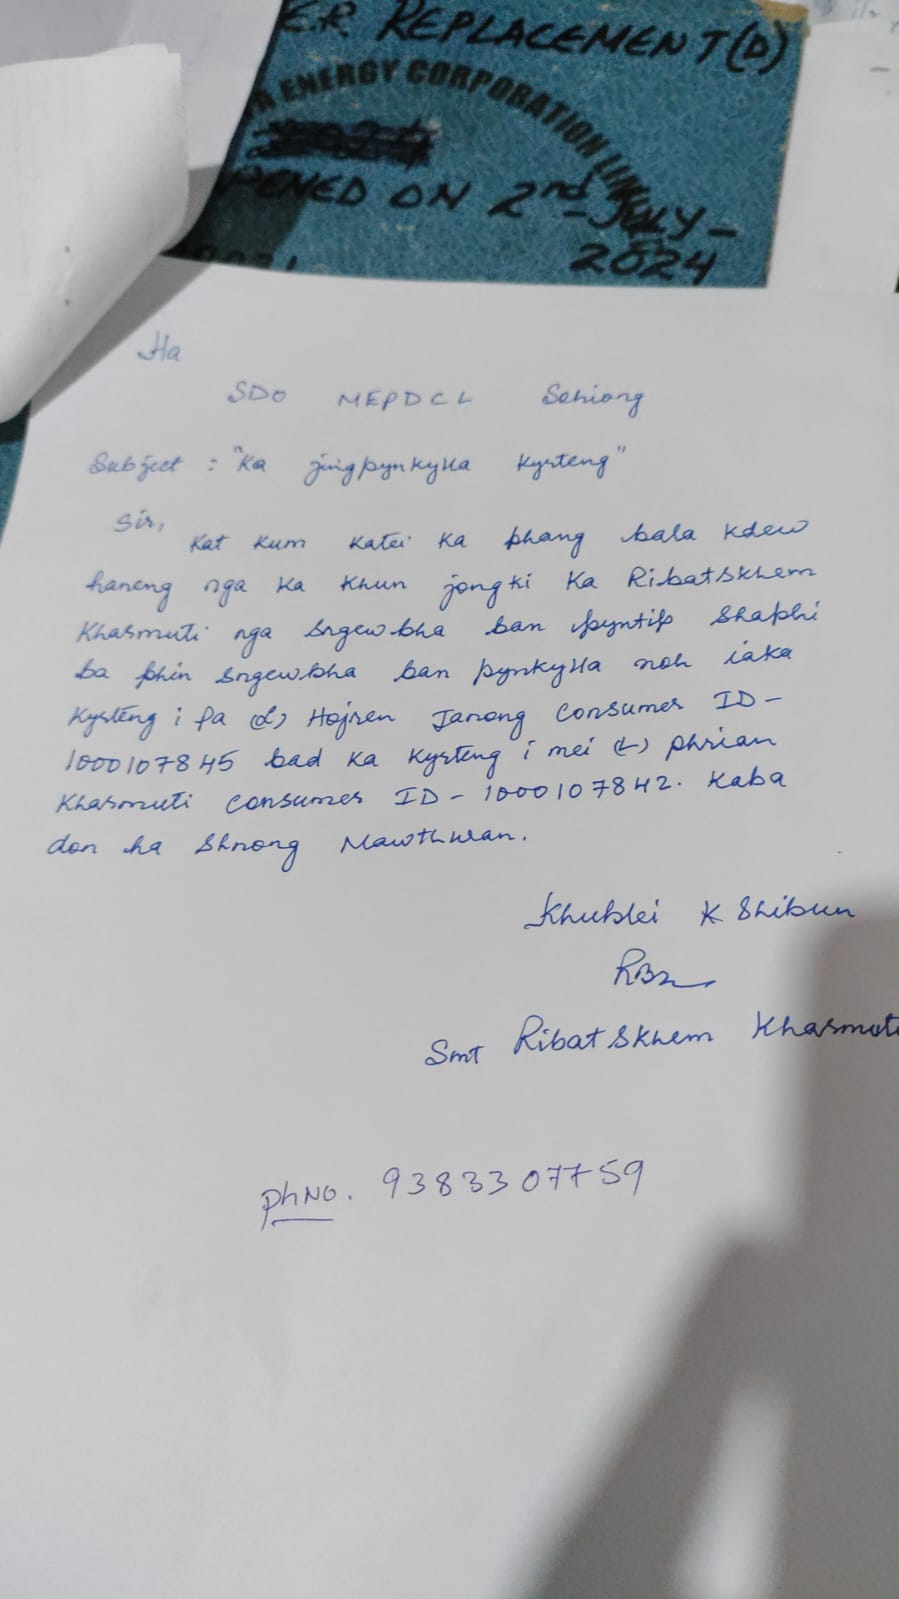 ER REPLACEMENT (D)
ENERGY CORPORATION
ON 2nd-JULY-
2024
Ha
SDO MEPDCL Sohiong
Subject : "Ka jingpynkylla kyrteng"
Sir,
Kat kum katei ka phang bala kdew
haneng nga ka khun jong ki Ka RibatSkhem
Khasmuti nga sngewbha ban pyntip shaphi
ba phin sngewbha ban pynkylla noh iaka
kyrteng i pa (L) Hojren Janong Consumer ID-
1000107845 bad ka kyrteng i mei (L) phrian
Khasmuti Consumer ID - 1000107842. Kaba
don ha Shnong Mawthwan.
Khublei K Shibun
Smt RibatSkhem Khasmuti
PhNo. 9383307759